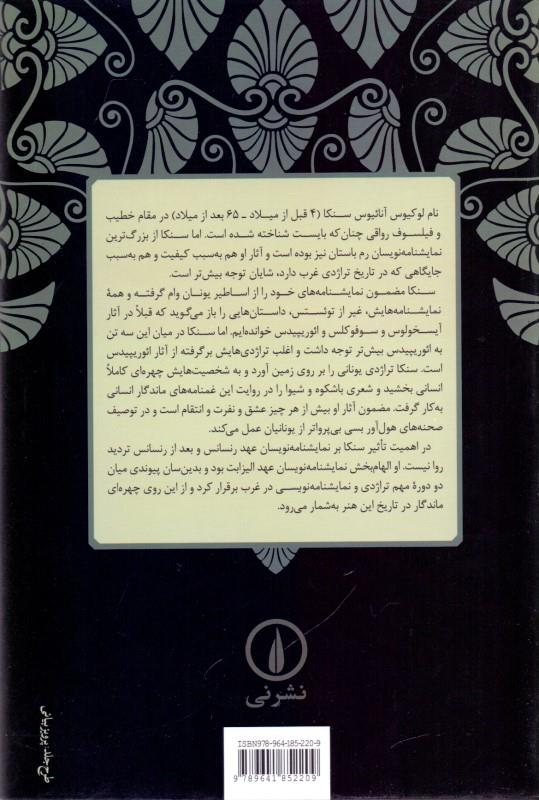 نام لوکیوس آنائیوس سنکا (۴ قبل از میلاد ـ ۶۵ بعد از میلاد) در مقام خطیب
و فیلسوف رواقی چنان‌که بایست شناخته شده است. اما سنکا از بزرگ‌ترین
نمایشنامه‌نویسان رم باستان نیز بوده است و آثار او هم به‌سبب کیفیت و هم به‌سبب
جایگاهی که در تاریخ تراژدی غرب دارد، شایان توجه بیش‌تر است.
سنکا مضمون نمایشنامه‌های خود را از اساطیر یونان وام گرفته و همهٔ
نمایشنامه‌هایش، غیر از توئستس، داستان‌هایی را باز می‌گوید که قبلاً در آثار
آیسخولوس و سوفوکلس و ائوریپیدس خوانده‌ایم. اما سنکا در میان این سه تن
به ائوریپیدس بیش‌تر توجه داشت و اغلب تراژدی‌هایش برگرفته از آثار ائوریپیدس
است. سنکا تراژدی یونانی را بر روی زمین آورد و به شخصیت‌هایش چهره‌ای کاملاً
انسانی بخشید و شعری باشکوه و شیوا را در روایت این غمنامه‌های ماندگار انسانی
به‌کار گرفت. مضمون آثار او بیش از هر چیز عشق و نفرت و انتقام است و در توصیف
صحنه‌های هول‌آور بسی بی‌پرواتر از یونانیان عمل می‌کند.
در اهمیت تأثیر سنکا بر نمایشنامه‌نویسان عهد رنسانس و بعد از رنسانس تردید
روا نیست. او الهام‌بخش نمایشنامه‌نویسان عهد الیزابت بود و بدین‌سان پیوندی میان
دو دورهٔ مهم تراژدی و نمایشنامه‌نویسی در غرب برقرار کرد و از این روی چهره‌ای
ماندگار در تاریخ این هنر به‌شمار می‌رود.
نشرنی
طرح جلد: پرویز بیانی
ISBN978-964-185-220-9
9 789641 852209